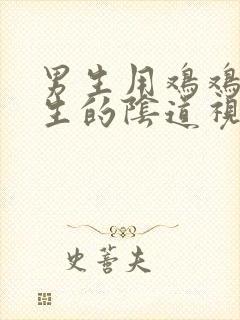 男生用鸡鸡
生的陰道視
史蒈夫